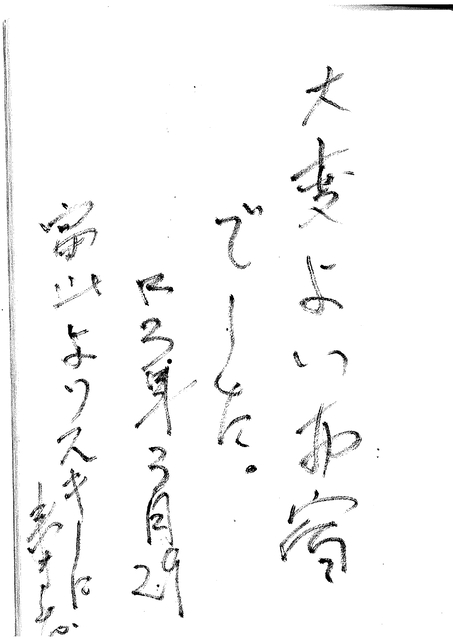 大変よいお宿
でした。
口3年3月29
富山よりスキーに
来ました